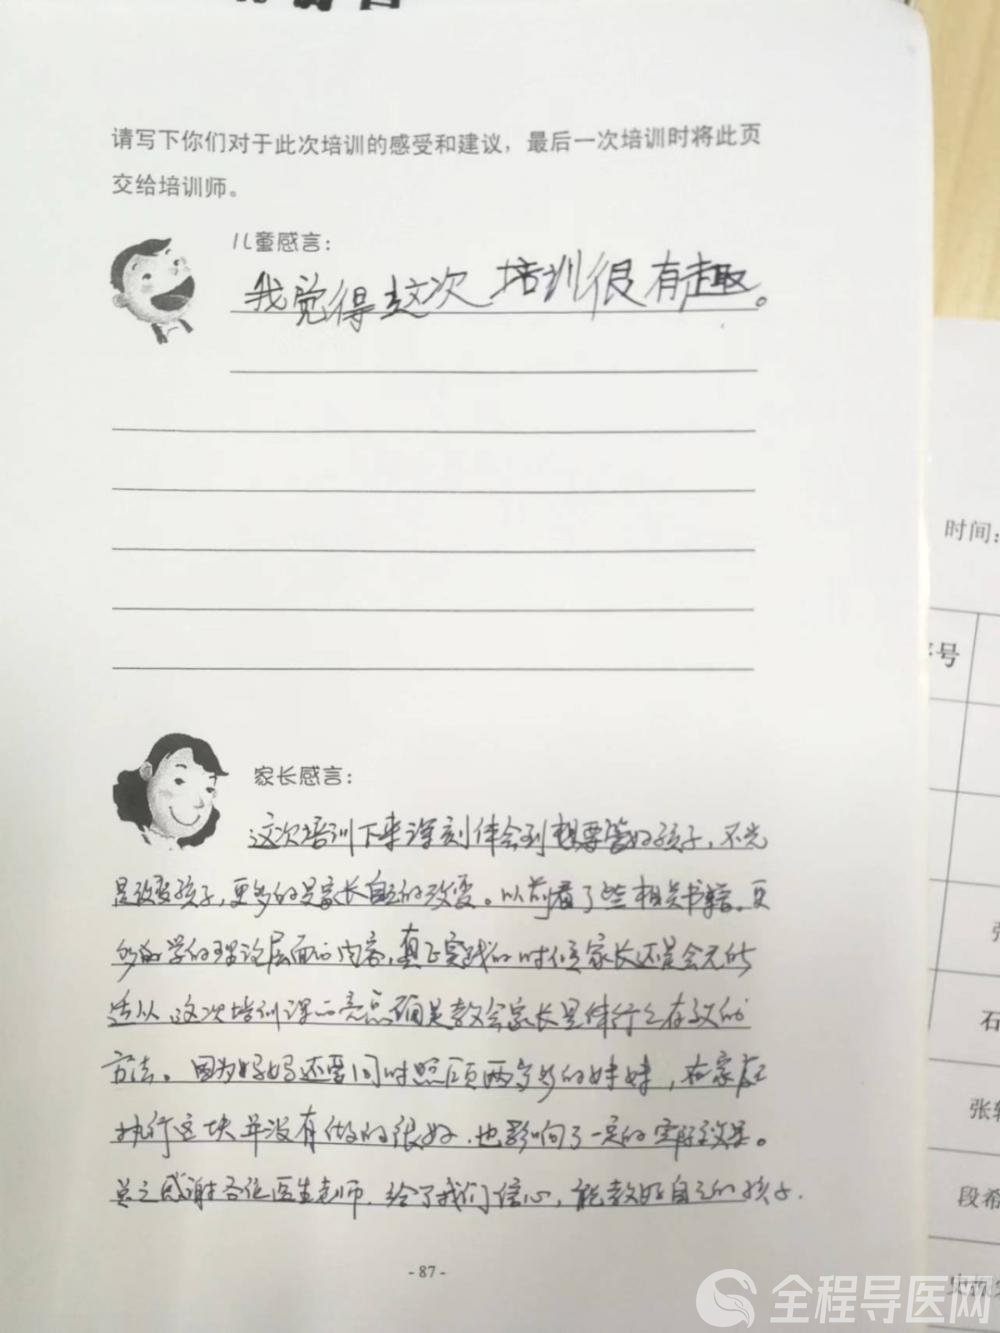 请写下你们对于此次培训的感受和建议，最后一次培训时将此页
交给培训师。
儿童感言：
我觉得这次培训很有趣。
家长感言：
这次培训下来深刻体会到想要管好孩子，不光
是改变孩子，更多的是家长自己的改变。以前看了些相关书籍，更
多的学的理论层面的内容，真正实践的时候家长还是会无所
适从，这次培训课的亮点确是教会家长具体行之有效的
方法。因为妈妈还要同时照顾两岁多的妹妹，在家庭
执行这块并没有做的很好，也影响了一定的实际效果。
总之感谢各位医生老师，给了我们信心，能教好自己的孩子.
- 87 -
时间：
序号
张
石
张
段希
全程导医网